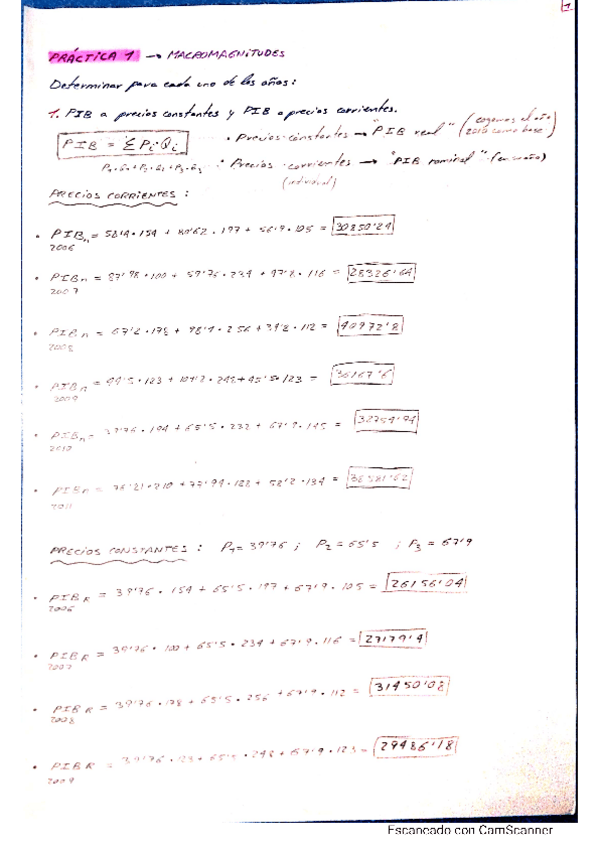 1.
PRÁCTICA 1 → MACROMAGNITUDES
Determinar para cada uno de los años:
1. PIB a precios constantes y PIB a precios corrientes.
PIB = ΣPi·Qi
· Precios constantes → "PIB real" (cogemos el año 2010 como base)
P1·Q1 + P2·Q2 + P3·Q3
· Precios corrientes → "PIB nominal" (año)
(individual)
PRECIOS CORRIENTES :
· PIBn = 58'4 · 154 + 80'62 · 197 + 56'9 · 105 = 30850'24
2006
· PIBn = 87'98 · 100 + 59'76 · 234 + 47'8 · 116 = 28326'64
2007
· PIBn = 67'2 · 178 + 98'4 · 256 + 39'2 · 112 = 40972'8
2008
· PIBn = · 123 + · 248 + 45'5 · 123 = 36167'6
2009
· PIBn = 39'76 · 194 + 65'5 · 232 + 67'9 · 145 = 32754'94
2010
· PIBn = 76'21 · 210 + · 188 + 58'2 · 134 = 38581'62
2011
PRECIOS CONSTANTES : P1 = 39'76 ; P2 = 65'5 ; P3 = 67'9
· PIBR = 39'76 · 154 + 65'5 · 197 + 67'9 · 105 = 26156'04
2006
· PIBR = 39'76 · 100 + 65'5 · 234 + 67'9 · 116 = 27179'4
2007
· PIBR = 39'76 · 178 + 65'5 · 256 + 67'9 · 112 = 31450'08
2008
· PIBR = 39'76 · 123 + 65'5 · 248 + 67'9 · 123 = 29486'18
2009
Escaneado con CamScanner